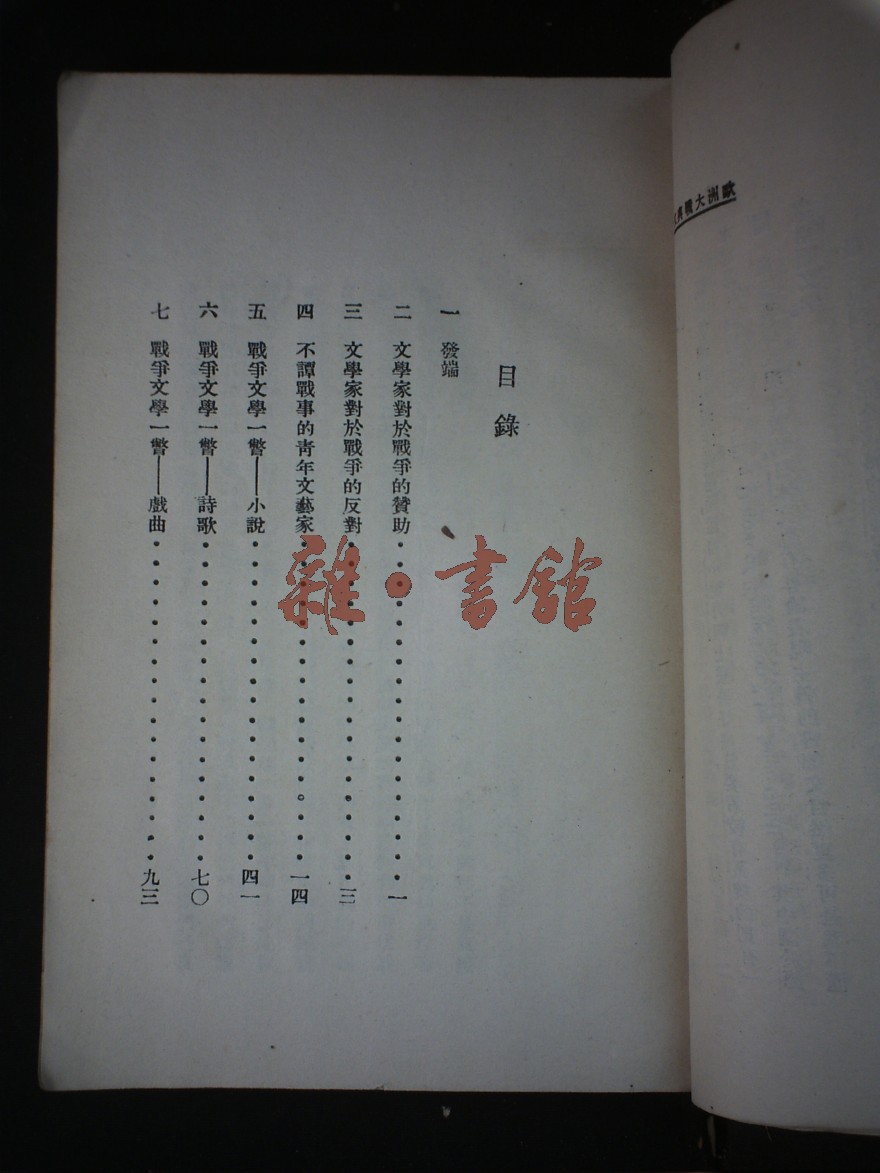 歐洲大戰與
目錄
一 發端
二 文學家對於戰爭的贊助・・・・・・・・・・・・・・・・・・一
三 文學家對於戰爭的反對・・・・・・・・・・・・・・・・・・三
四 不譚戰事的靑年文藝家・・・・・・・・・・・・・・・・・一四
五 戰爭文學一瞥——小說・・・・・・・・・・・・・・・・・四一
六 戰爭文學一瞥——詩歌・・・・・・・・・・・・・・・・・七〇
七 戰爭文學一瞥——戲曲・・・・・・・・・・・・・・・・・九三
雜・書館